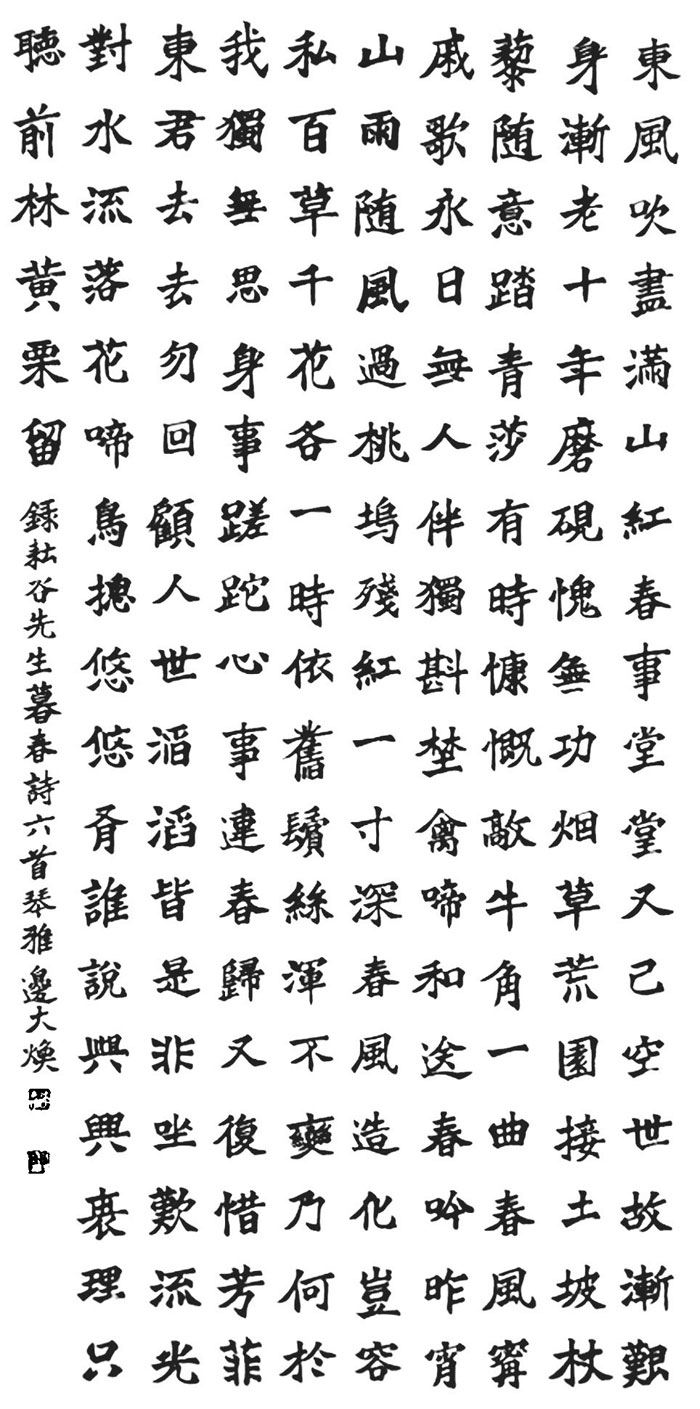 東風吹盡滿山紅春事堂堂又已空世故漸艱
身漸老十年磨硯愧無功烟草荒園接土坡杖
藜随意踏青莎有時慷慨敲牛角一曲春風寗
戚歌永日無人伴獨斟埜禽啼和送春吟昨宵
山雨随風過桃塢殘紅一寸深春風造化豈容
私百草千花各一時依舊鬢絲渾不變乃何於
我獨無思身事蹉跎心事違春歸又復惜芳菲
東君去去勿回顧人世滔滔皆是非坐歎流光
對水流落花啼鳥揔悠悠胥誰說與興衰理只
聽前林黃栗留
錄耘谷先生暮春詩六首琴雅邊大煥